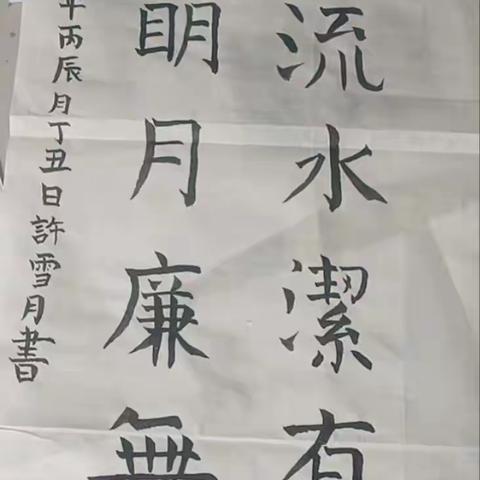 流水潔有
明月廉無
年丙辰月丁丑日許雪月書